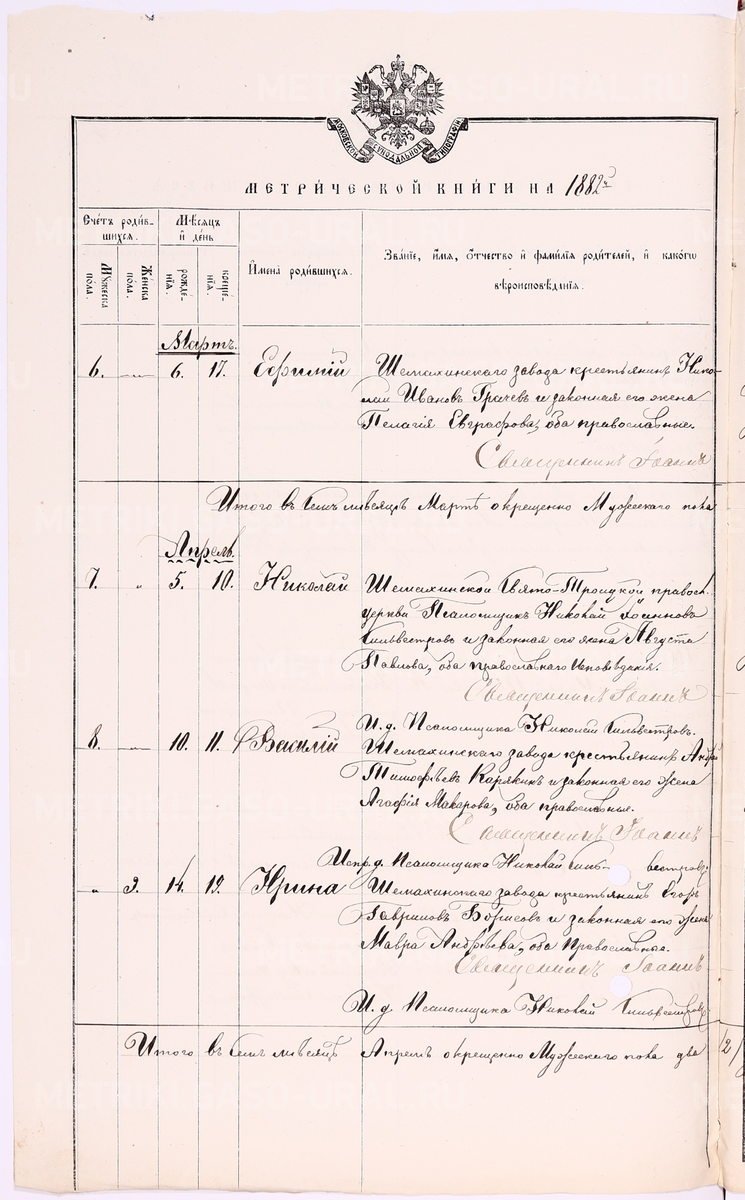 МОСКОВСКОЙ СѴНОДАЛЬНОЙ ТИПОГРАФІИ
МЕТРИ́ЧЕСКОЙ КНИ́ГИ НА 1882й
Сче́тъ роди́в-
шихсѧ.
Мѣсѧцъ
и҆ де́нь
Мꙋжеска
по́ла.
Же́нска
по́ла.
рожде́-
нїѧ.
креще́-
нїѧ.
И҆мена̀ роди́вшихсѧ.
Зва́нїе, и҆́мѧ, ѻ҆́тчество и҆ фами́лїѧ роди́телей, и҆ како́гѡ
вѣроисповѣ́данїѧ.
Мартъ.
6. 6. 17. Ефимій Шемахинскаго завода крестьянинъ Нико-
лай Ивановъ Грачевъ и законная его жена
Пелагія Евграфова, оба православные.
Священникъ Іоаннъ
Итого въ семъ мѣсяцѣ Мартѣ окрещенно Мужескаго пола
Апрель.
7. " 5. 10. Николай Шемахинской Свято-Троицкой правос.
церкви Псаломщикъ Николай
Сильвестровъ и законная его жена Августа
Павлова, оба православнаго исповѣданія.
Священникъ Іоаннъ
И. д. Псаломщика Николай Сильвестровъ.
8. 10. 11. Василій Шемахинскаго завода крестьянинъ Андрей
Тимофѣевъ Карякинъ и законная его жена
Агафія Макарова, оба православные.
Священникъ Іоаннъ
Испр. д. Псаломщика Николай Силь- вестровъ.
" 2. 14. 19. Ирина Шемахинскаго завода крестьянинъ Егоръ
Гавриловъ Борисовъ и законная его жена
Мавра Андрѣева, оба Православные.
Священникъ Іоаннъ
И. д Псаломщика Николай Сильвестровъ
Итого въ семъ мѣсяцѣ Апрелѣ окрещенно Мужескаго пола два
METRIKI.GASO-URAL.RU